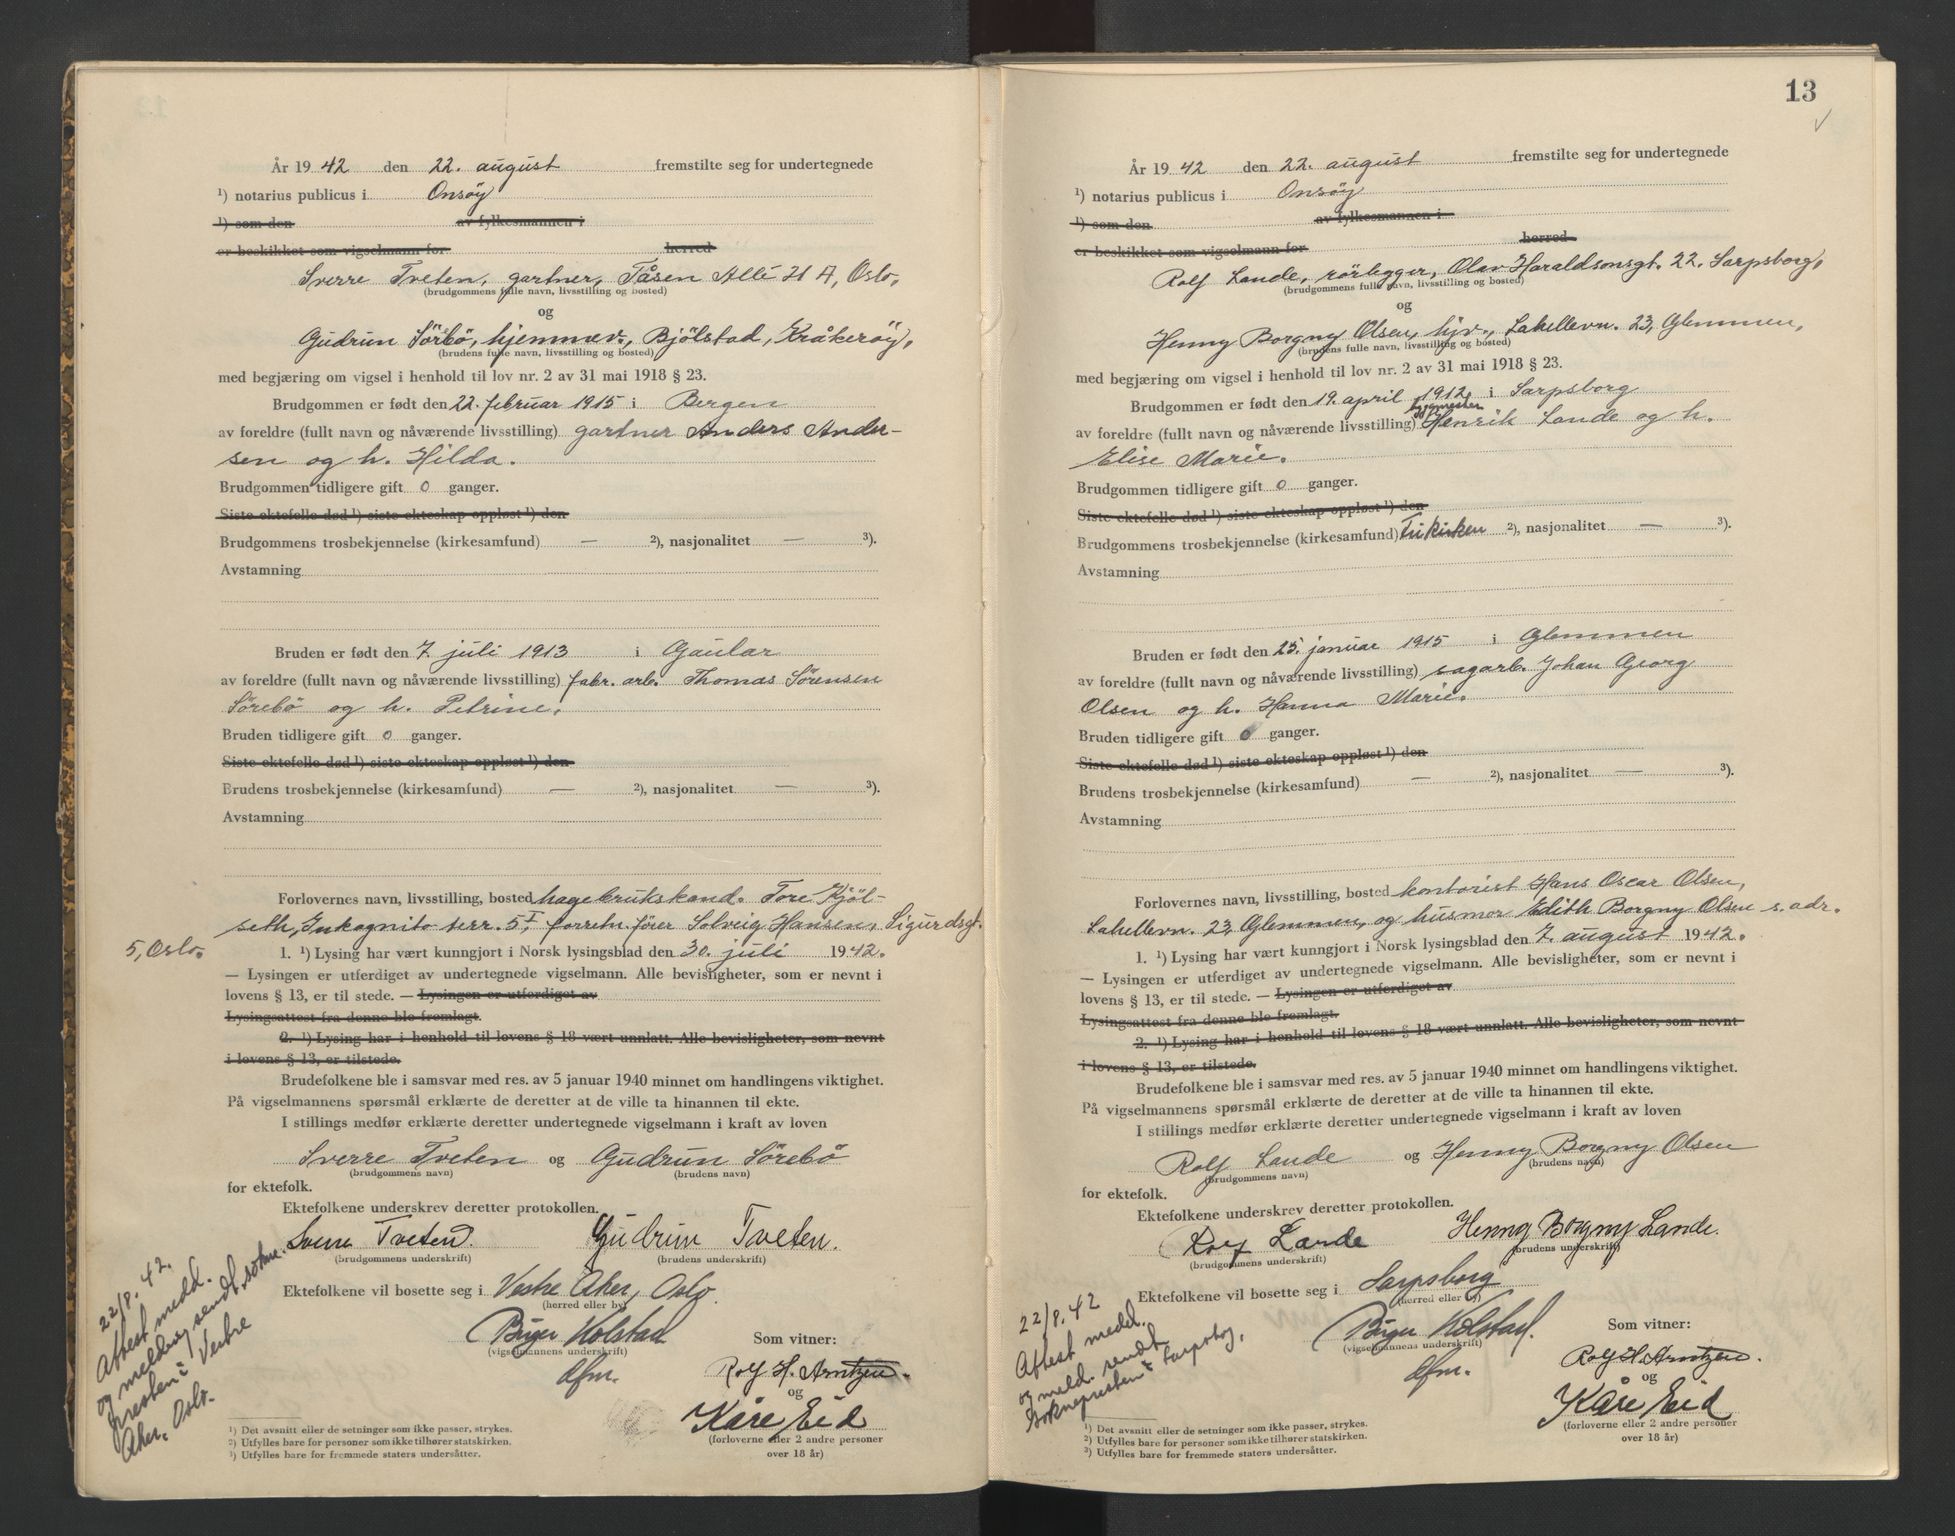 År 19 42 den 22. august fremstilte seg for undertegnede
¹) notarius publicus i Onsöy
¹) som den av fylkesmannen i
er beskikket som vigselmann for herred
Sverre Tveten, gartner, Tåsen Allé 21 A, Oslo,
(brudgommens fulle navn, livsstilling og bosted)
og
Gudrun Sörbö, hjemmev., Bjölstad, Kråkeröy,
(brudens fulle navn, livsstilling og bosted)
med begjæring om vigsel i henhold til lov nr. 2 av 31 mai 1918 § 23.
Brudgommen er født den 22. februar 1915 i Bergen
av foreldre (fullt navn og nåværende livsstilling) gartner Anders Ander-
sen og h. Hilda.
Brudgommen tidligere gift 0 ganger.
Siste ektefelle død ¹) siste ekteskap oppløst ¹) den
Brudgommens trosbekjennelse (kirkesamfund) — ²), nasjonalitet — ³).
Avstamning
Bruden er født den 7. juli 1913 i Gaular
av foreldre (fullt navn og nåværende livsstilling) fabr. arb. Thomas Sörensen
Sörebö og h. Petrine.
Bruden tidligere gift 0 ganger.
Siste ektefelle død ¹) siste ekteskap oppløst ¹) den
Brudens trosbekjennelse (kirkesamfund) — ²), nasjonalitet — ³).
Avstamning
Forlovernes navn, livsstilling, bosted hagebrukskand. Tore Kjöl-
seth, Inkognito terr. 5 I, forretn.förer Solveig Hansen, Sigurdsgt.
5, Oslo.
1. ¹) Lysing har vært kunngjort i Norsk lysingsblad den 30. juli 1942.
— Lysingen er utferdiget av undertegnede vigselmann. Alle bevisligheter, som er nevnt i
lovens § 13, er til stede. — Lysingen er utferdiget av
Lysingsattest fra denne ble fremlagt.
2. ¹) Lysing har i henhold til lovens § 18 vært unnlatt. Alle bevisligheter, som nevnt
i lovens § 13, er tilstede.
Brudefolkene ble i samsvar med res. av 5 januar 1940 minnet om handlingens viktighet.
På vigselmannens spørsmål erklærte de deretter at de ville ta hinannen til ekte.
I stillings medfør erklærte deretter undertegnede vigselmann i kraft av loven
Sverre Tveten og Gudrun Sörebö
(brudgommens navn) (brudens navn)
for ektefolk.
Ektefolkene underskrev deretter protokollen.
Sverre Tveten. Gudrun Tveten.
(brudgommens underskrift) (brudens underskrift)
Ektefolkene vil bosette seg i Vestre Aker, Oslo.
(herred eller by)
Birger Holstad
(vigselmannens underskrift)
dfm.
Som vitner:
Rolf H. Arntzen.
og
Kåre Eid
(forloverne eller 2 andre personer
over 18 år)
22/8. 42.
Attest medd.
og melding sendt sokne-
presten i Vestre
Aker, Oslo.
¹) Det avsnitt eller de setninger som ikke passer, strykes.
²) Utfylles bare for personer som ikke tilhører statskirken.
³) Utfylles bare for fremmede staters undersåtter.
13
År 19 42 den 22. august fremstilte seg for undertegnede
¹) notarius publicus i Onsöy
¹) som den av fylkesmannen i
er beskikket som vigselmann for herred
Rolf Lande, rörlegger, Olav Haraldsonsgt. 22, Sarpsborg,
(brudgommens fulle navn, livsstilling og bosted)
og
Henny Borgny Olsen, hjv., Labellevn. 23, Glemmen,
(brudens fulle navn, livsstilling og bosted)
med begjæring om vigsel i henhold til lov nr. 2 av 31 mai 1918 § 23.
Brudgommen er født den 19. april 1912 i Sarpsborg
av foreldre (fullt navn og nåværende livsstilling) byggmester Henrik Lande og h.
Elise Marie.
Brudgommen tidligere gift 0 ganger.
Siste ektefelle død ¹) siste ekteskap oppløst ¹) den
Brudgommens trosbekjennelse (kirkesamfund) Frikirken ²), nasjonalitet — ³).
Avstamning
Bruden er født den 25. januar 1915 i Glemmen
av foreldre (fullt navn og nåværende livsstilling) sagarb. Johan Georg
Olsen og h. Hanna Marie.
Bruden tidligere gift 0 ganger.
Siste ektefelle død ¹) siste ekteskap oppløst ¹) den
Brudens trosbekjennelse (kirkesamfund) — ²), nasjonalitet — ³).
Avstamning
Forlovernes navn, livsstilling, bosted kontorist Hans Oscar Olsen,
Labellevn. 23, Glemmen, og husmor Edith Borgny Olsen s. adr.
1. ¹) Lysing har vært kunngjort i Norsk lysingsblad den 7. august 1942.
— Lysingen er utferdiget av undertegnede vigselmann. Alle bevisligheter, som er nevnt i
lovens § 13, er til stede. — Lysingen er utferdiget av
Lysingsattest fra denne ble fremlagt.
2. ¹) Lysing har i henhold til lovens § 18 vært unnlatt. Alle bevisligheter, som nevnt
i lovens § 13, er tilstede.
Brudefolkene ble i samsvar med res. av 5 januar 1940 minnet om handlingens viktighet.
På vigselmannens spørsmål erklærte de deretter at de ville ta hinannen til ekte.
I stillings medfør erklærte deretter undertegnede vigselmann i kraft av loven
Rolf Lande og Henny Borgny Olsen
(brudgommens navn) (brudens navn)
for ektefolk.
Ektefolkene underskrev deretter protokollen.
Rolf Lande Henny Borgny Lande.
(brudgommens underskrift) (brudens underskrift)
Ektefolkene vil bosette seg i Sarpsborg
(herred eller by)
Birger Holstad.
(vigselmannens underskrift)
dfm.
Som vitner:
Rolf H. Arntzen.
og
Kåre Eid
(forloverne eller 2 andre personer
over 18 år)
22/8. 42
Attest medd.
og meld. sendt
soknepresten i Sarpsborg.
¹) Det avsnitt eller de setninger som ikke passer, strykes.
²) Utfylles bare for personer som ikke tilhører statskirken.
³) Utfylles bare for fremmede staters undersåtter.